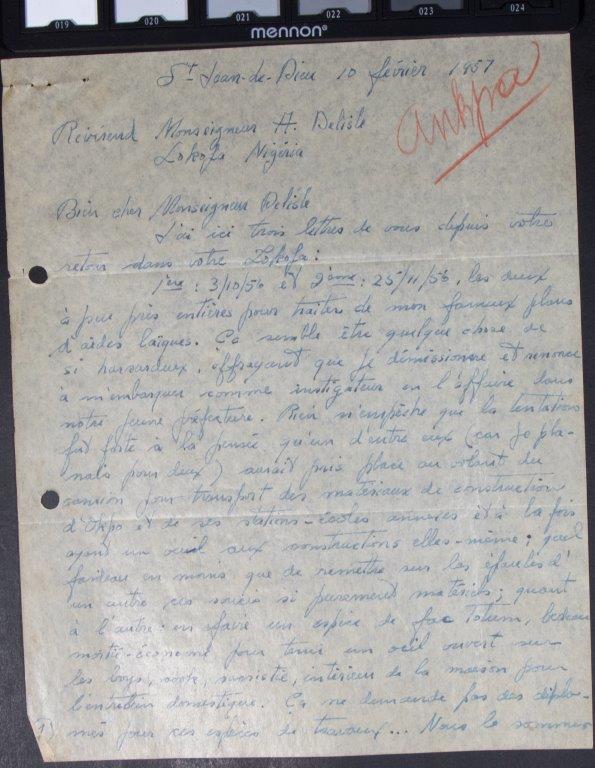 019 020 021 022 023 024
mennon®
St-Jean-de-Dieu 10 février 1957
Ankpa
Révérend Monseigneur H. Delisle
Lokoja Nigéria
Bien cher Monseigneur Delisle
J'ai ici trois lettres de vous depuis votre
retour dans votre Lokoja:
1ère: 3/10/56 et 2ème: 25/11/56, les deux
à peu près entières pour traiter de mon fameux plans
d'aides laïques. Ça semble être quelque chose de
si hasardeux, effrayant que je démissionne et renonce
à m'embarquer comme instigateur en l'affaire dans
notre jeune préfecture. Rien n'empêche que la tentation
fut forte à la pensée qu'un d'entre eux (car je pla-
nais pour deux) aurait pris place au volant du
camion pour transport des matériaux de construction
d'Okpo et de ses stations-écoles annexes et à la fois
ayant un oeuil aux constructions elles-même; quel
fardeau en moins que de remettre sur les épaules d'
un autre ces soucis si purement matériels; quant
à l'autre: en faire un espèce de fac totum, bedeau
moitié-économe pour tenir un oeil ouvert sur
les boys, cook, sacristie, intérieur de la maison pour
l'entretien domestique. Ça ne demande pas des diplô-
1) més pour ces espèces de travaux... Nous le sommes